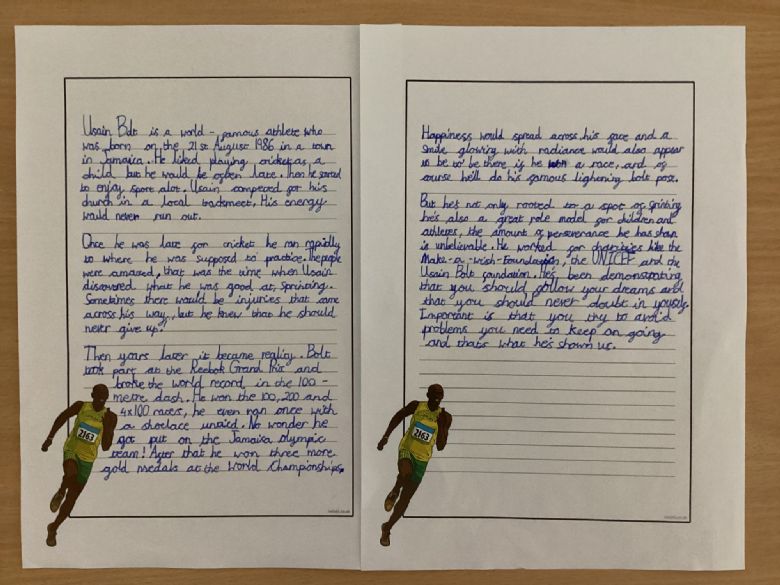 Usain Bolt is a world - famous athlete who
was born on the 21st August 1986 in a town
in Jamaica. He liked playing cricket as a
child but he would be often late. Then he started
to enjoy sport alot. Usain competed for his
church in a local trackmeet. His energy
would never run out.
Once he was late for cricket he ran rapidly
to where he was supposed to practice. The people
were amazed, that was the time when Usain
discovered what he was good at, sprinting.
Sometimes there would be injuries that came
across his way, but he knew that he should
never give up!
Then years later it became reality. Bolt
took part at the Reebok Grand Prix and
broke the world record, in the 100 -
metre dash. He won the 100, 200 and
4x100 racers, he even ran once with
a shoelace untied. No wonder he
got put on the Jamaica olympic
team! After that he won three more
gold medals at the World Championships.
2163
Happiness would spread across his face and a
smile glowing with radiance would also appear
to be to be there if he a race, and of
course he'll do his famous lightening bolt pose.
But he's not only rooted to a spot of sprinting
he's also a great role model for children and
athletes, the amount of perseverance he has shown
is unbelievable. He worked for charities like the
Make-a-wish-foundation, the UNICEF and the
Usain Bolt foundation. He's been demonstrating
that you should follow your dreams and
that you should never doubt in yourself.
Important is that you try to avoid
problems you need to keep on going
and that's what he's shown us.
2163